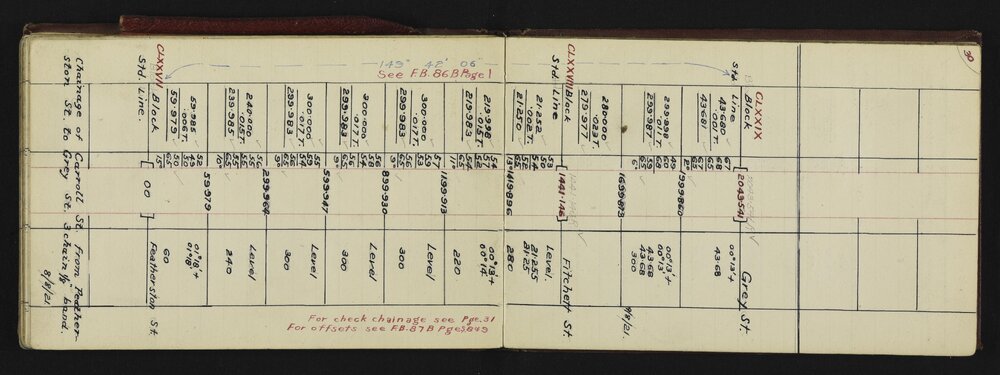 30
149° 42' 06"
See F.B. 86B Page 1
Chainage of Carroll St. from Feather-
ston St. to Grey St. 3 chain 1/8" band.
8/8/21.
CLXXVII Block
Std. Line.
59·985
·006 T.
59·979
240·000
·015 T.
239·985
300·000
·017 T.
299·983
300·000
·017 T.
299·983
300·000
·017 T.
299·983
219·998
·015 T.
219·983
21·252
·002 T.
21·250
CLXXVIII Block
Std. Line
280·000
·023 T.
279·977
299·998
·011 T.
299·987
43·680
·001 T.
43·681
CLXXIX
Block
Line
Std.
00
59·979
299·964
599·947
899·930
1199·913
1419·896
1441·146
1699·873
1999·860
2043·541
Featherston St
60
01° 18' +
01° 18'
240
Level
300
Level
300
Level
300
Level
220
00° 13' +
00° 14'
280
21·25
21·255
Level.
Fitchett St.
300
43·68
43·68
00° 13'
00° 13' +
43·68
00° 13' +
Grey St.
9/8/21.
For check chainage see Pge. 31
For offsets see F.B. 87 B Pges 8&9